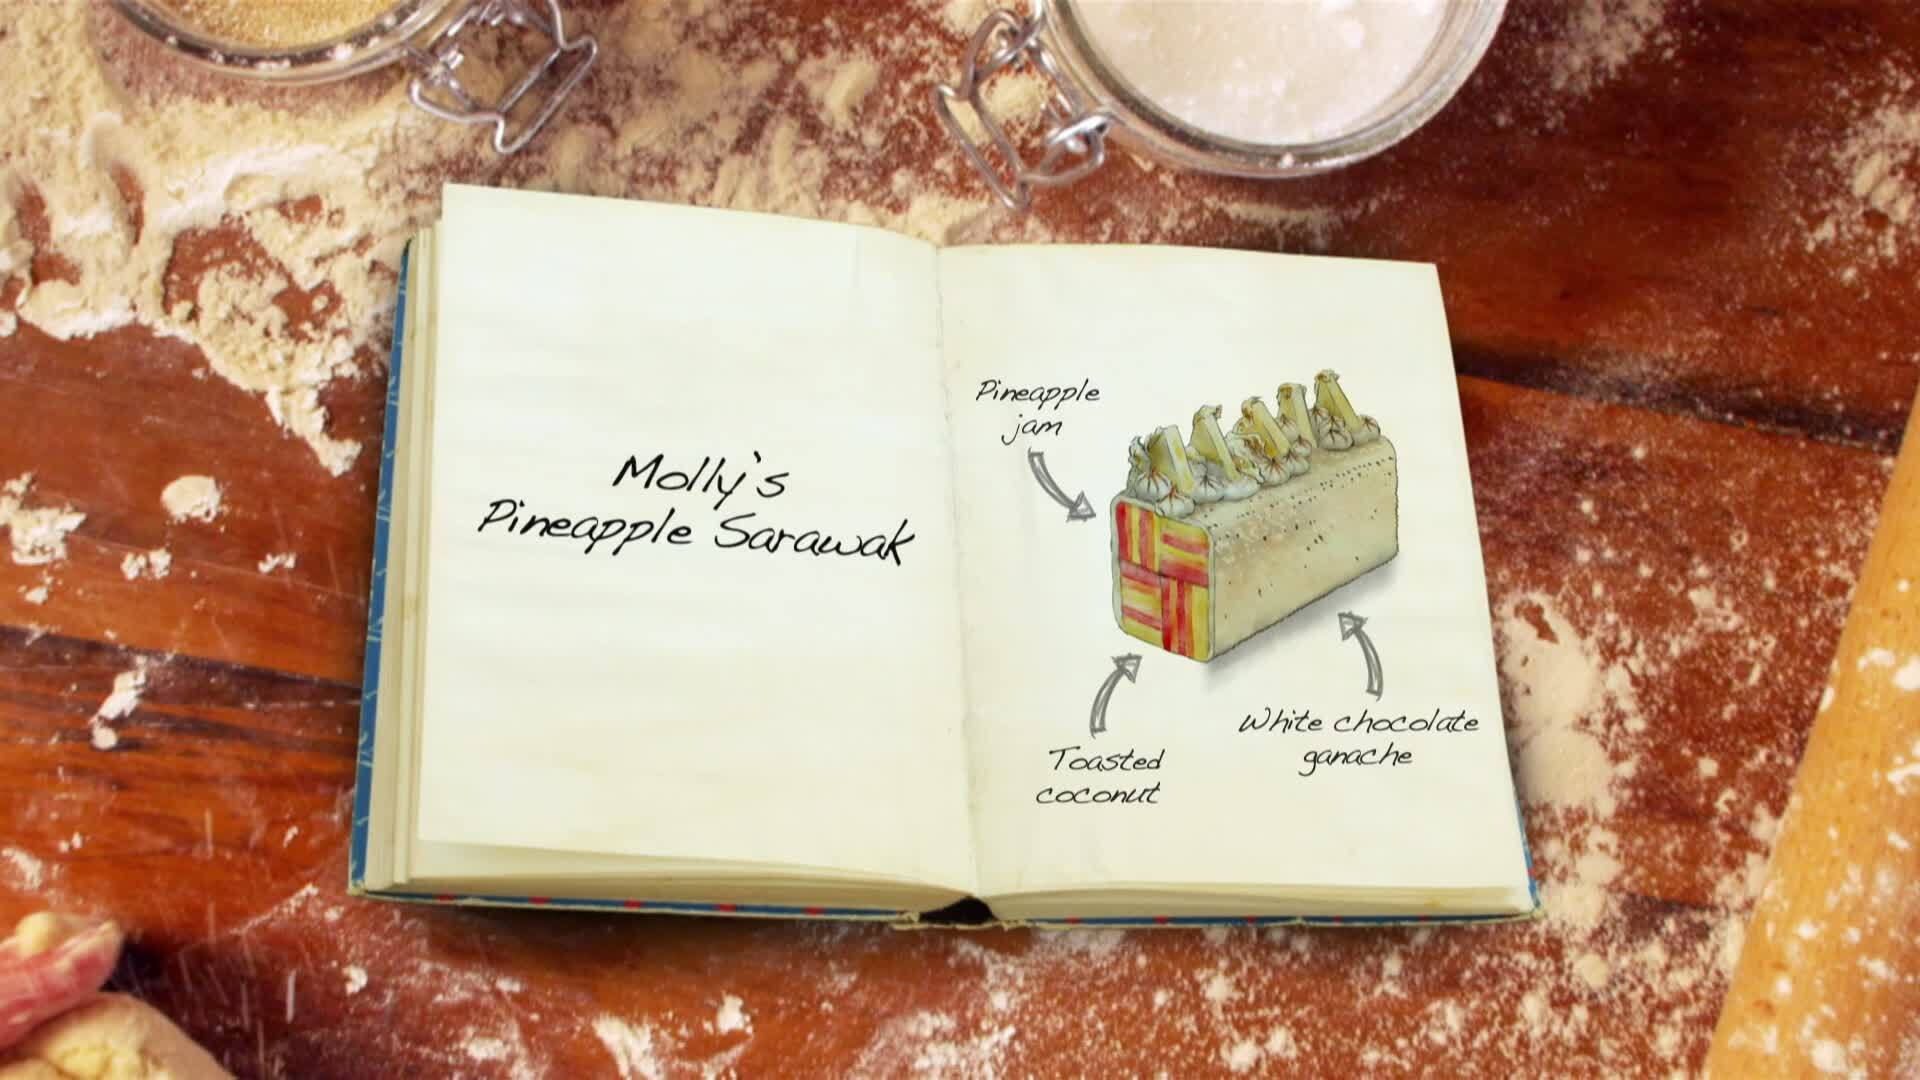 Molly's
Pineapple Sarawak
Pineapple
jam
Toasted
coconut
White chocolate
ganache